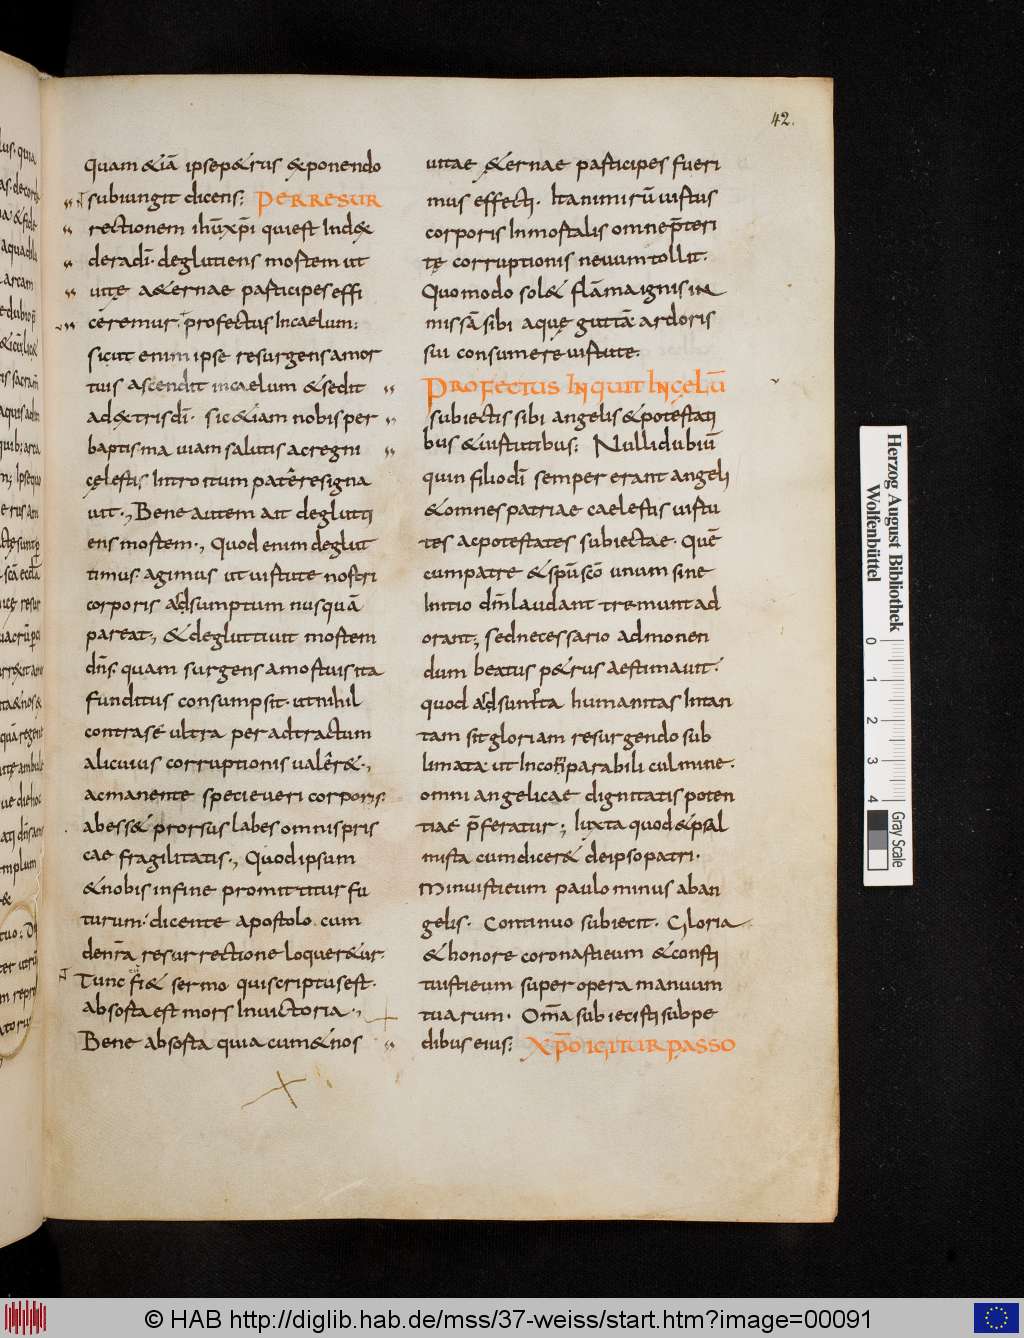 42.
quam &iā ipsep&rus exponendo
subiungit dicens: PERRESUR
rectionem ihūxp̄i quiest Index
deradī· deglutiens mortem ut
uitę a&ernae participes effi
ceremur· profectus Incaelum:
sicut enim ipse resurgens amor
tuis ascendit incaelum &sedit
adextris dī· sic&iam nobis per
baptisma uiam salutis ac regni
cęlestis Introitum patēre signa
uit·, Bene autem ait deglutti
ens mortem·, Quod enim deglut
timus· agimus ut uirtute nostri
corporis adsumptum nusquā
pareat·, &degluttiuit mortem
dn̄s· quam surgens amortuis ita
funditus consumpsit· utnihil
contrasé ultra per adtractum
alicuius corruptionis ualer&·,
acmanente specie ueri corporis·
abess& prorsus labes omnis pris
cae fragilitatis·, Quod ipsum
&nobis infine promittitur fu
turum· dicente apostolo cum
den̄ra resurrectione loquer&ur·
Tunc fi& sermo qui scriptus est·
absorta est mors Inuictoria·,
Bene absorta quia cum&nos
uitae &ernae participes fueri
mus effecti· Ita nimirū uirtus
corporis Inmortalis omne p̄teri
tę corruptionis neuum tollit·
Quomodo sol& flāma ignis iN
missā sibi aquę guttā ardoris
sui consumere uirtute·
PROFECTUS INQUIT INCELŪ
subiectis sibi angelis &potestati
bus &uirtutibus: Nulli dubiū
quin filio dī semper erant angeli
&omnes patriae caelestis uirtu
tes acpotestates subiectae· Quē
cum patre &sp̄uscō unum sine
Initio dn̄m laudant tremunt ad
orant·, sed necessario admonen
dum beatus p&rus aestimauit·
quod adsumpta humanitas Intan
tam sit gloriam resurgendo sub
limata· ut Inconparabili culmine·
omni angelicae dignitatis poten
tiae p̄feratur·, Iuxta quod &psal
mista cum dicer& de ipso patri·
Minuisti eum paulo minus aban
gelis· Continuo subiecit· Gloria
&honore coronasti eum &consti
tuisti eum super opera manuum
tuarum· Om̄a subiecisti sub pe
dibus eius: XP̄O IGITUR PASSO
Herzog August Bibliothek
Wolfenbüttel
0 1 2 3 4
Gray Scale
© HAB http://diglib.hab.de/mss/37-weiss/start.htm?image=00091